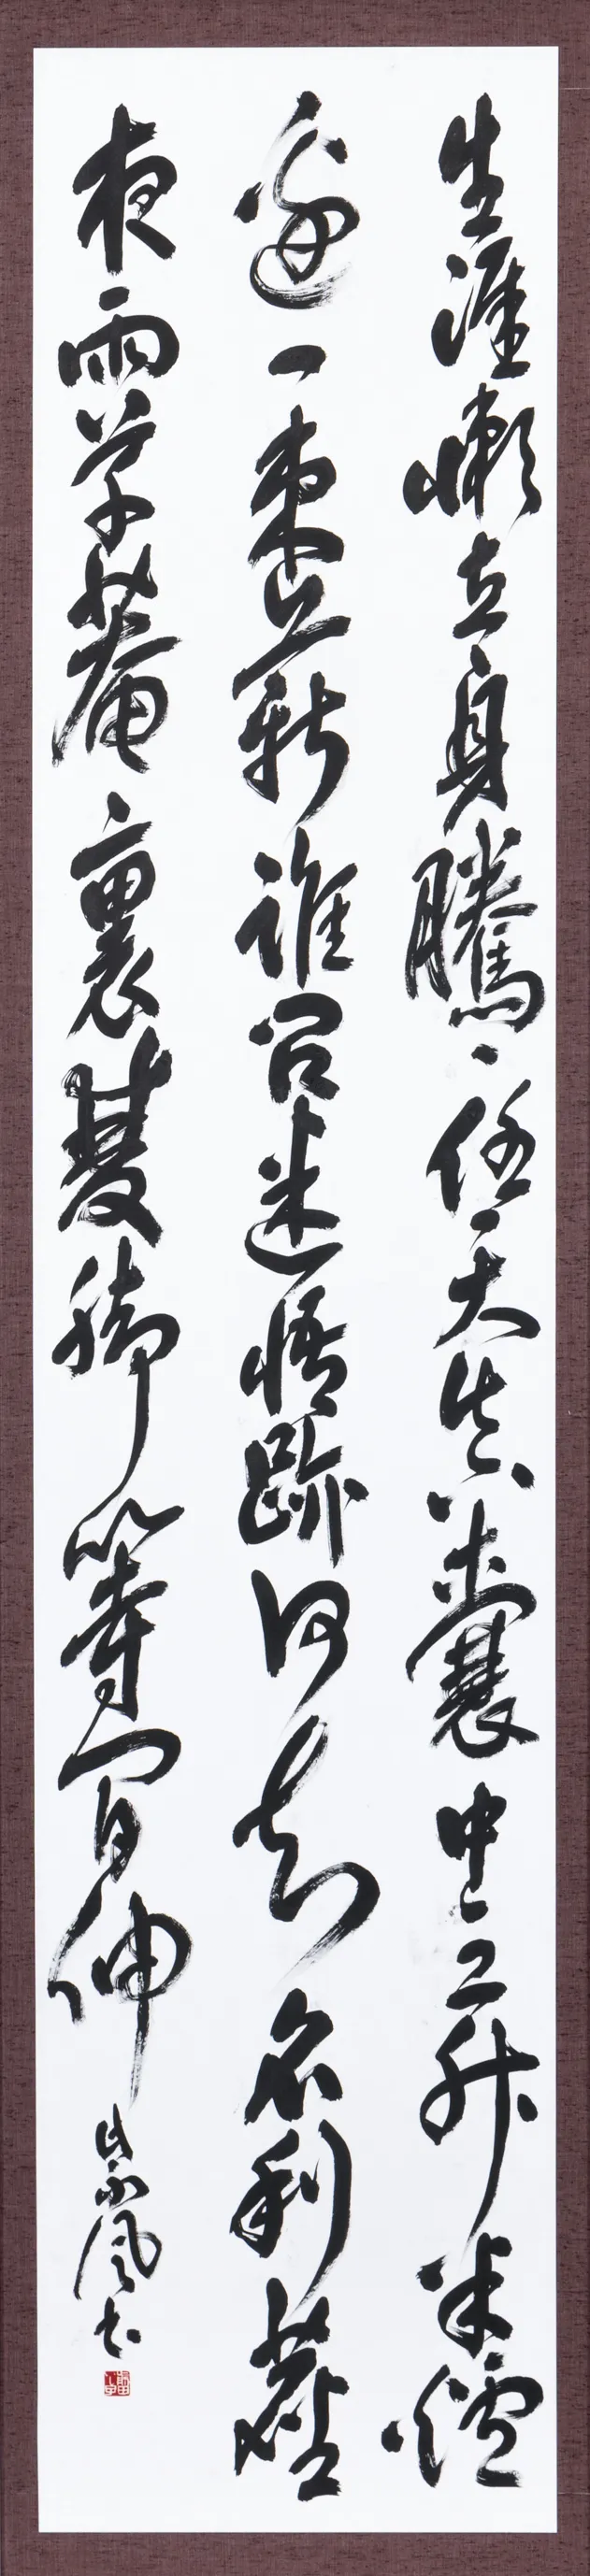 生涯懶立身騰々任天真嚢中三升米爐
邊一束薪誰問迷悟跡何知名利塵
夜雨草菴裏雙脚等間伸
紫風書